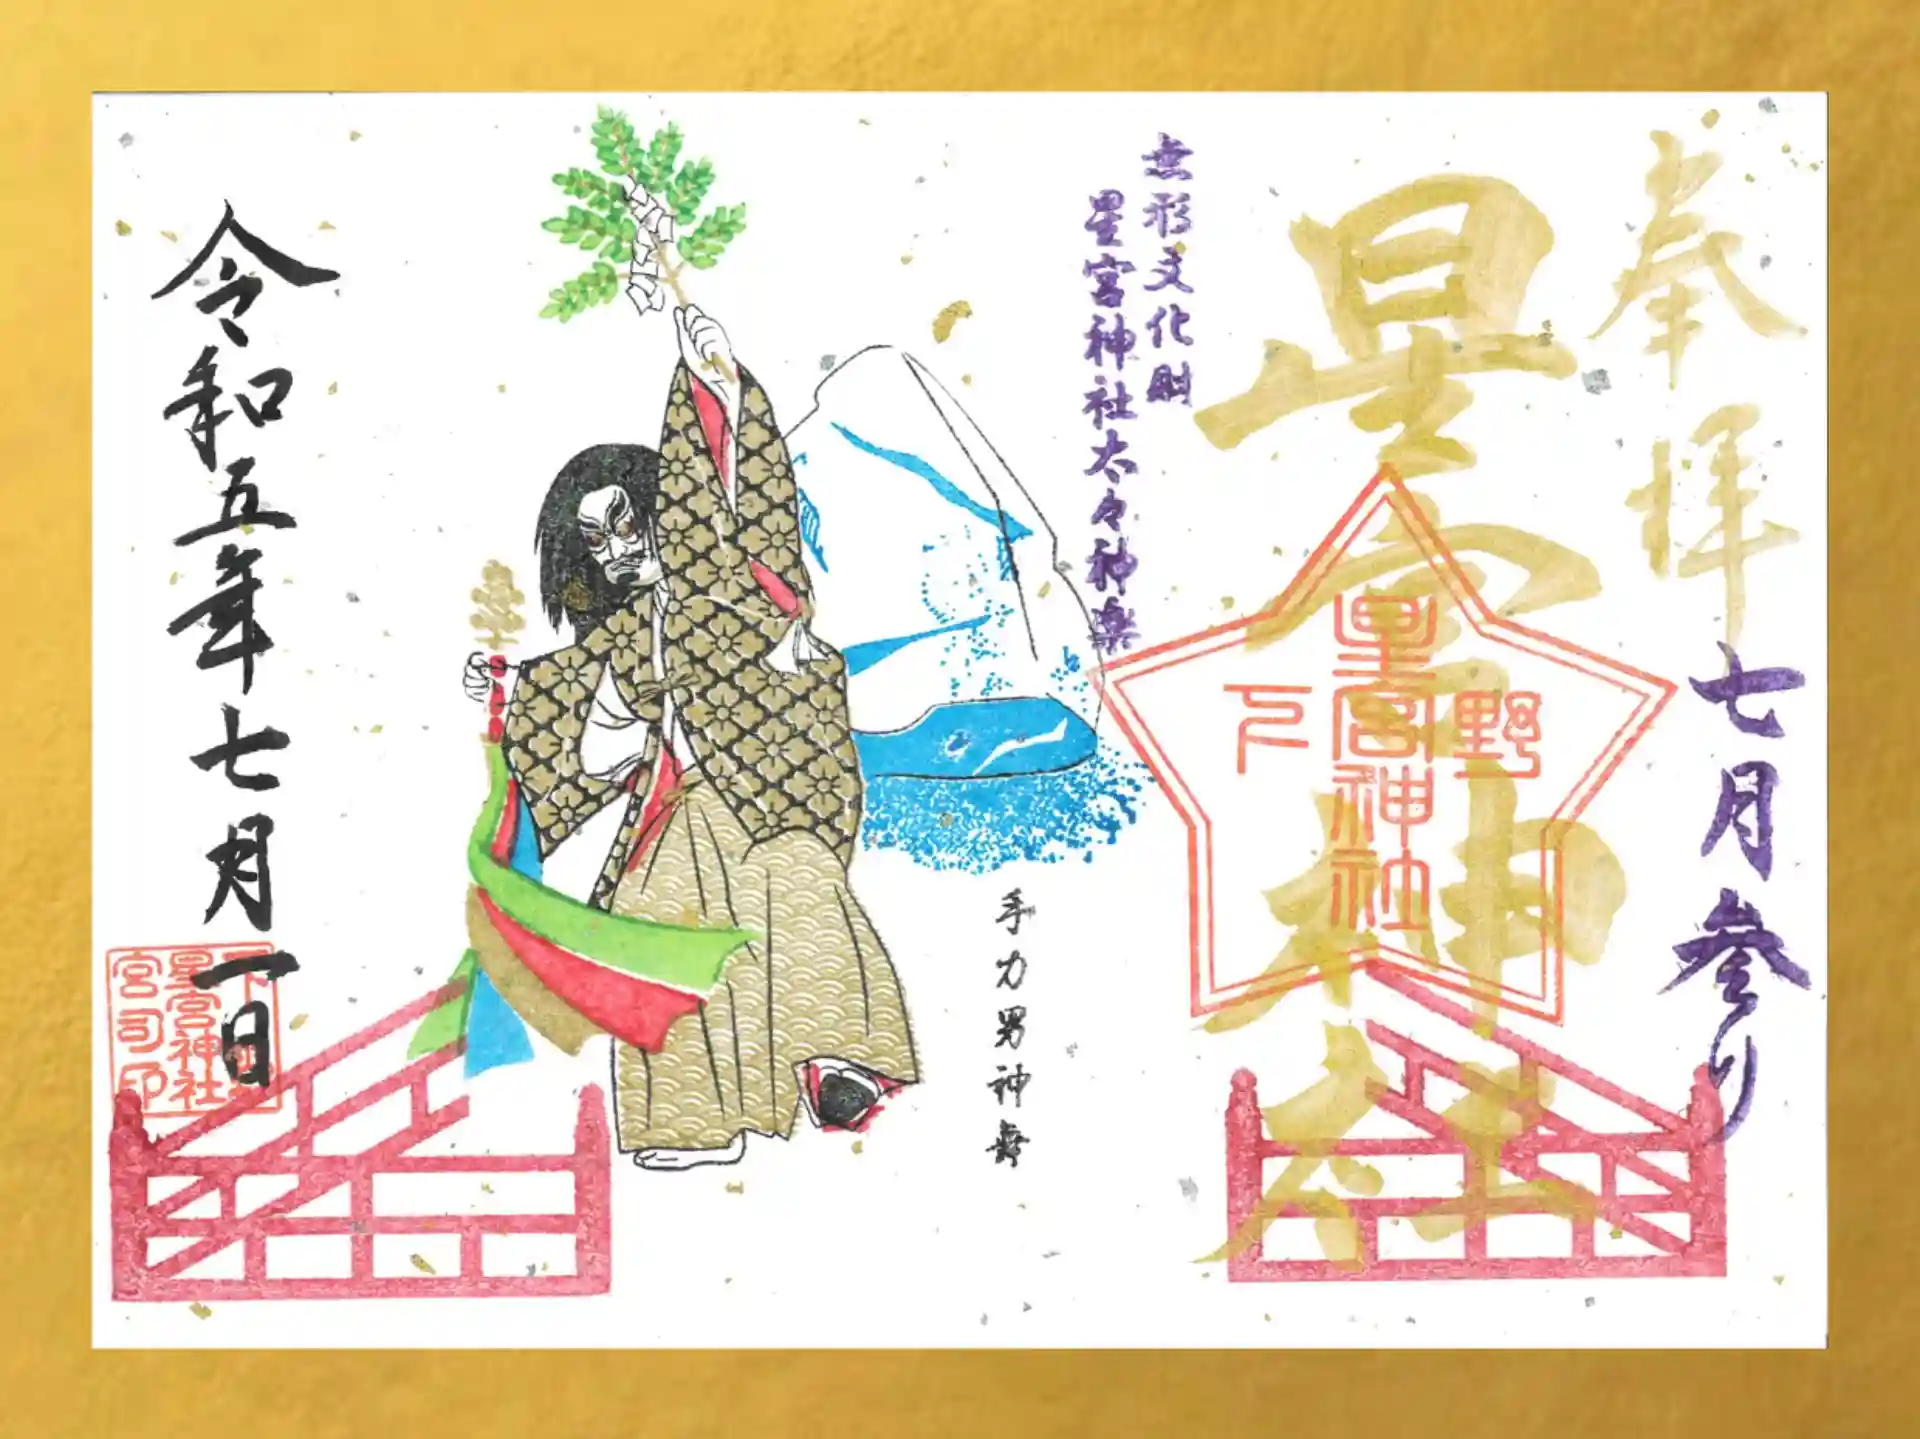 奉拝
七月参り
星宮神社
下野
星宮神社
無形文化財
星宮神社太々神楽
手力男神舞
令和五年七月一日
下野
星宮神社
宮司印